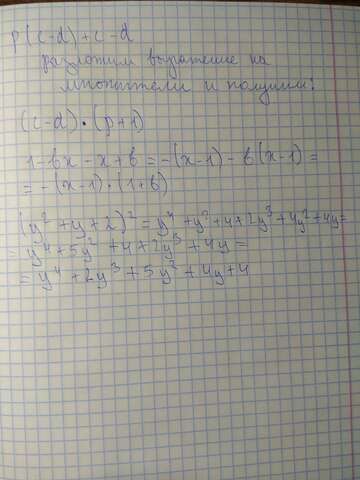 p(c-d)+c-d
разложим выражение на
множители и получим:
(c-d)•(p+1)
1-bx-x+b=-(x-1)-b(x-1)=
=-(x-1)•(1+b)
(y²+y+2)²=y⁴+y²+4+2y³+4y²+4y=
=y⁴+5y²+4+2y³+4y=
=y⁴+2y³+5y²+4y+4